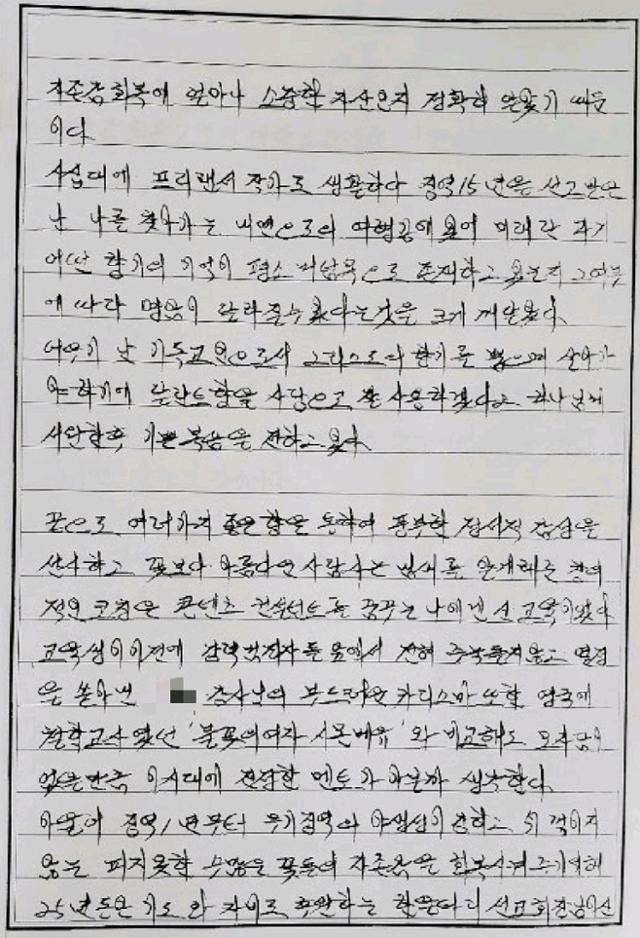 자존감회복에 얼마나 소중한 자산인지 정확히 알았기 때문
이다.
사십대에 프리랜서 작가로 생활하다 징역15년을 선고받은
난 나를 찾아가는 내면으로의 여행공에 있어 미래란 과거
어떤 향기의 기억이 평소 버팀목으로 존재하고 있는지 그여부
에 따라 명암이 달라질수 있다는것을 크게 깨달았다.
더우기 난 기독교인으로서 그리스도의향기를 뿜으며 살아가
야하기에 달란트함을 사람으로 잘 사용하겠다고 하나님께
서안할후 기쁜복음을 전하고 있다.
끝으로 여러가지 좋은향을 통하여 풍부한 정서적 감성을
선사하고 꽃보다 아름다운 사람사는 냄새를 알게해준 창의
적인 코칭은 콘텐츠 컨설턴트를 꿈꾸는 나에겐 신교육이었다
교육생이이전에 강력범죄자들 앞에서 전혀 주눅들지않고 열정
을 쏟아낸 강사님의 부드러운 카리스마 또한 영국에
철학교사였던 '불꽃의여자 시몬베유'와 비교해도 모자람이
없을만큼 이시대에 진정한 멘토가 아닐까 생각한다.
아울러 징역1년부터 무기징역의 야생성이강하고 쉬 꺾이지
않는 피지못한 수많은 꽃들의 자존감을 회복시켜주기위해
25년동안 기도와 자비로 후원하는 한울타리 선교회진행이신